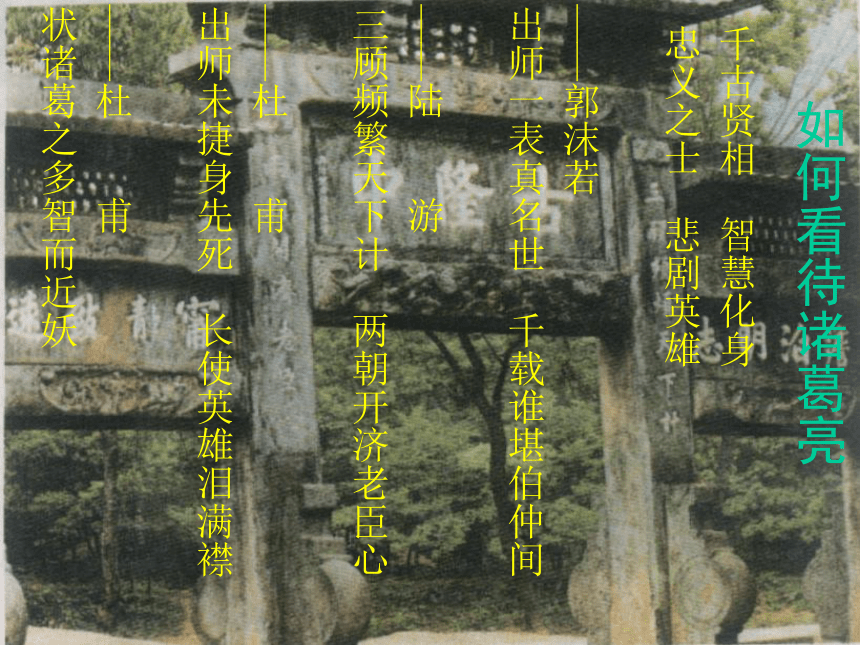 如何看待诸葛亮
千古贤相　智慧化身
忠义之士　悲剧英雄
——郭沫若
出师一表真名世　千载谁堪伯仲间
——陆　游
三顾频繁天下计　两朝开济老臣心
——杜　甫
出师未捷身先死　长使英雄泪满襟
——杜　甫
状诸葛之多智而近妖
古隆中
澹泊明志
寧靜致遠